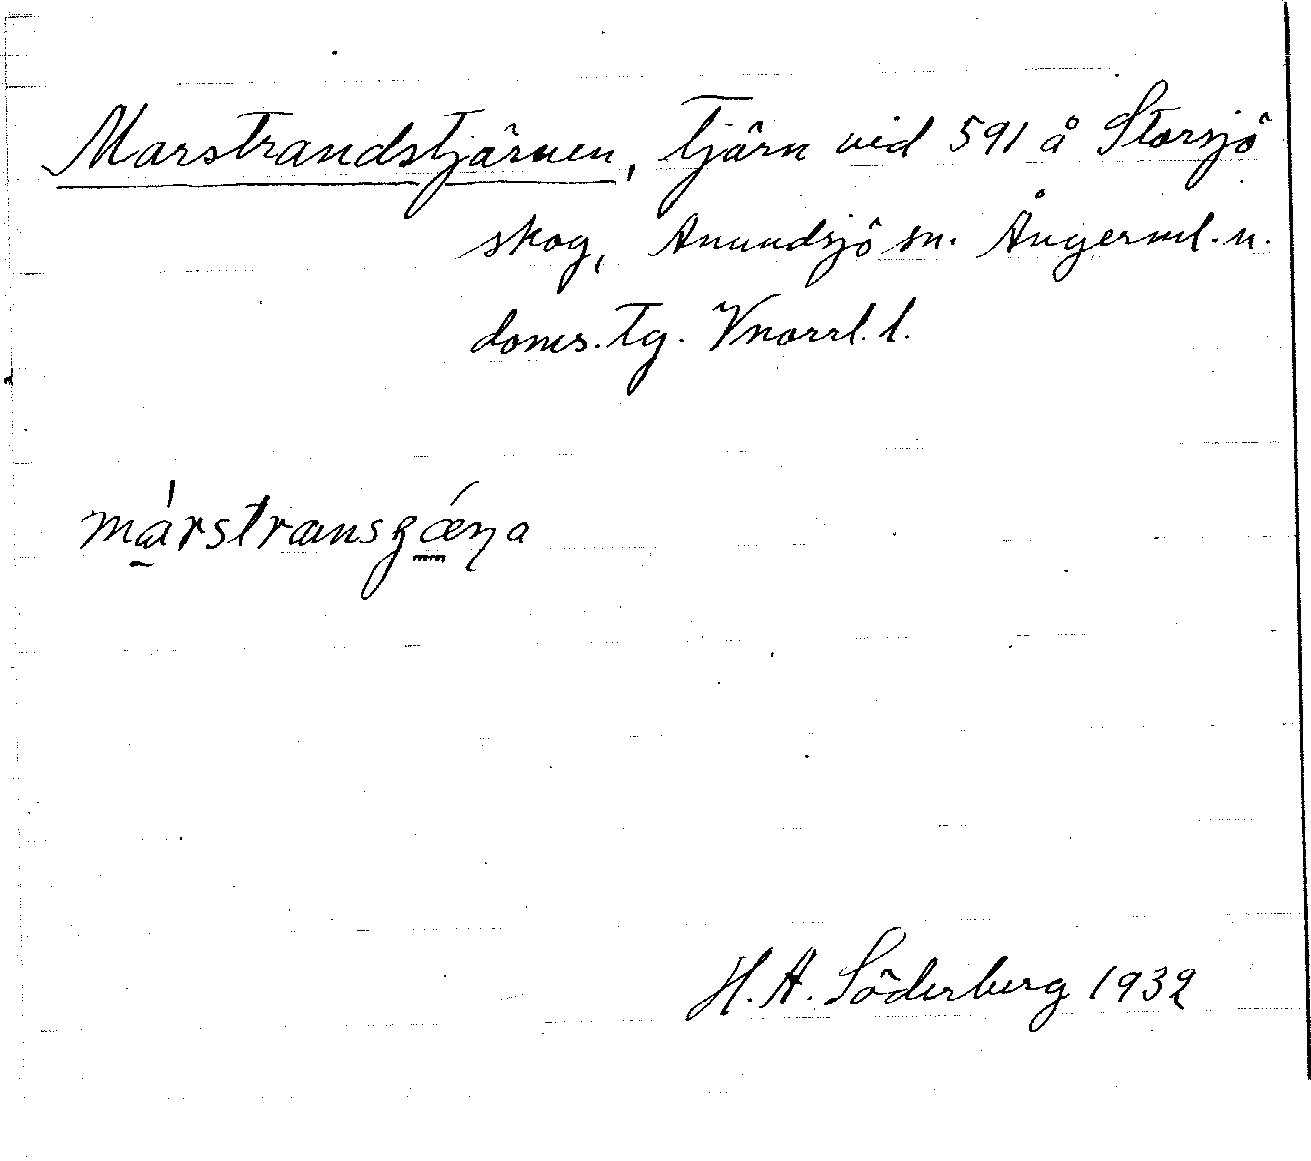 Marstrandstjärnen, tjärn vid 591 å Storsjö
skog, Anundsjö sn. Ångerml. n.
doms. tg. Vnorrl. l.
márstransgǽṇa
H. A. Söderberg 1932